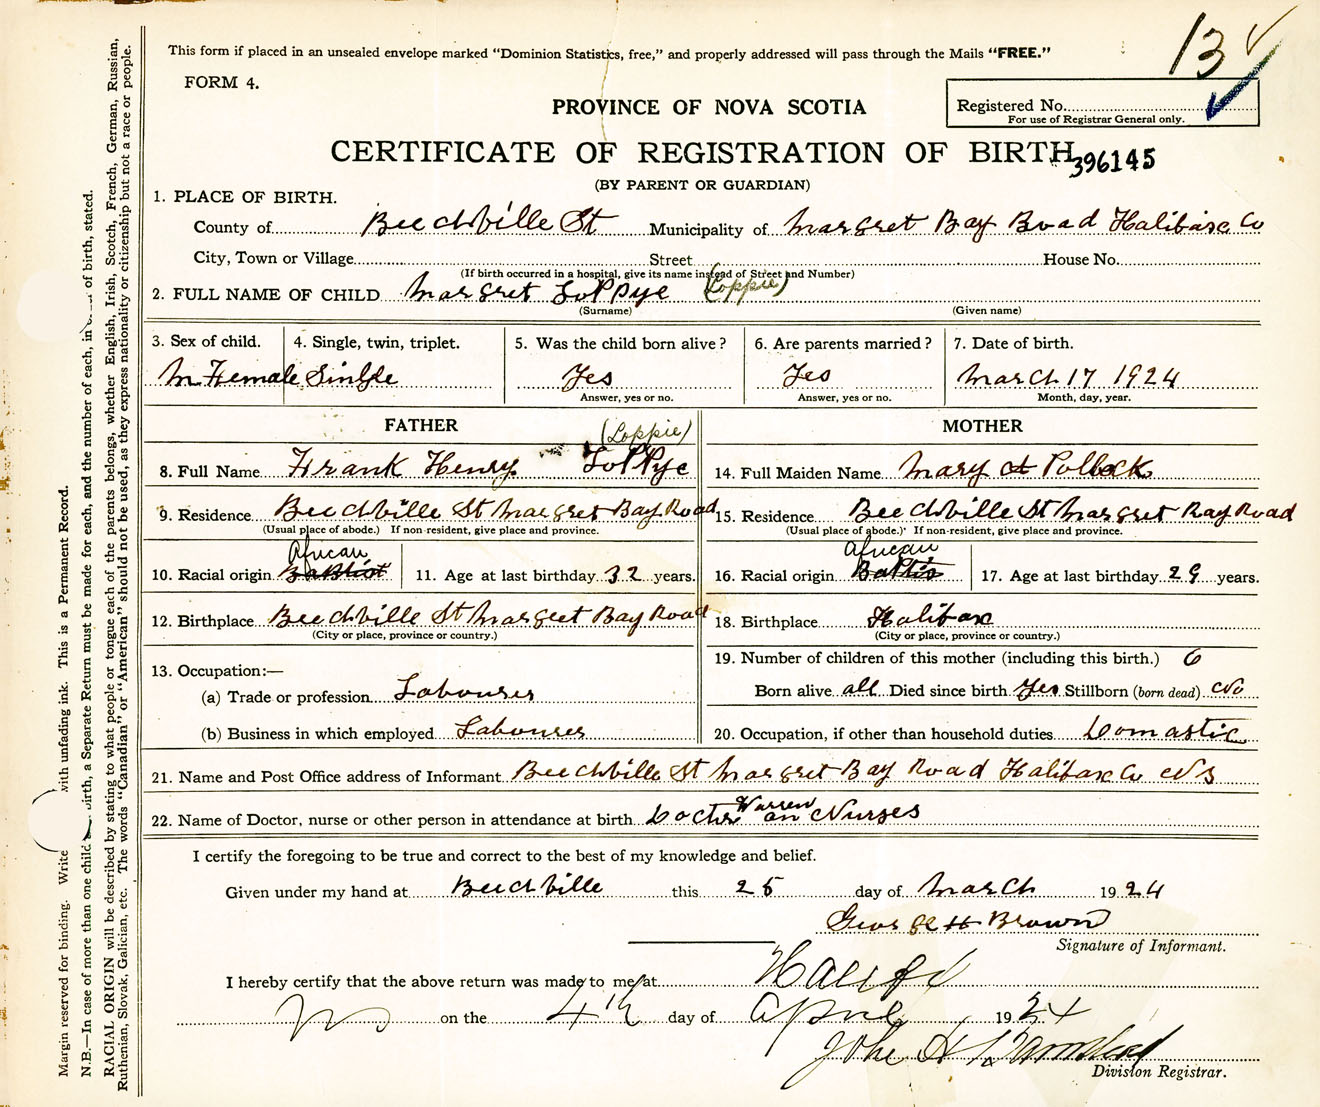 This form if placed in an unsealed envelope marked "Dominion Statistics, free," and properly addressed will pass through the Mails "FREE."
13
FORM 4.
PROVINCE OF NOVA SCOTIA
Registered No.
For use of Registrar General only.
CERTIFICATE OF REGISTRATION OF BIRTH
396145
(BY PARENT OR GUARDIAN)
1. PLACE OF BIRTH.
County of Beechville St Municipality of Margret Bay Boad Halifax Co
City, Town or Village Street House No.
(If birth occurred in a hospital, give its name instead of Street and Number)
2. FULL NAME OF CHILD Margret LoPPye (Loppie)
(Surname) (Given name)
3. Sex of child. 4. Single, twin, triplet. 5. Was the child born alive? 6. Are parents married? 7. Date of birth.
M Female Single Yes Yes March 17 1924
Answer, yes or no. Answer, yes or no. Month, day, year.
FATHER
(Loppie)
8. Full Name Frank Henry LoPPye
9. Residence Beechville St Margret Bay Road
(Usual place of abode.) If non-resident, give place and province.
African
10. Racial origin Babtist 11. Age at last birthday 32 years.
12. Birthplace Beechville St Margret Bay Road
(City or place, province or country.)
13. Occupation:—
(a) Trade or profession Labourer
(b) Business in which employed Labourer
MOTHER
14. Full Maiden Name Mary A Pollock
15. Residence Beechville St Margret Bay Road
(Usual place of abode.) If non-resident, give place and province.
African
16. Racial origin Baptis 17. Age at last birthday 29 years.
18. Birthplace Halifax
(City or place, province or country.)
19. Number of children of this mother (including this birth.) 6
Born alive all Died since birth Yes Stillborn (born dead) No
20. Occupation, if other than household duties Domastic
21. Name and Post Office address of Informant Beechville St Margret Bay Road Halifax Co N S
22. Name of Doctor, nurse or other person in attendance at birth Docter Warren an Nurses
I certify the foregoing to be true and correct to the best of my knowledge and belief.
Given under my hand at Beechville this 25 day of March 1924
George H Brown
Signature of Informant.
I hereby certify that the above return was made to me at Halifax
NS on the 4th day of April 1924
John A
Division Registrar.
Margin reserved for binding. Write with unfading ink. This is a Permanent Record.
N.B.—In case of more than one child birth, a Separate Return must be made for each, and the number of each, in of birth, stated.
RACIAL ORIGIN will be described by stating to what people or tongue each of the parents belongs, whether English, Irish, Scotch, French, German, Russian,
Ruthenian, Slovak, Galician, etc. The words "Canadian" or "American" should not be used, as they express nationality or citizenship but not a race or people.